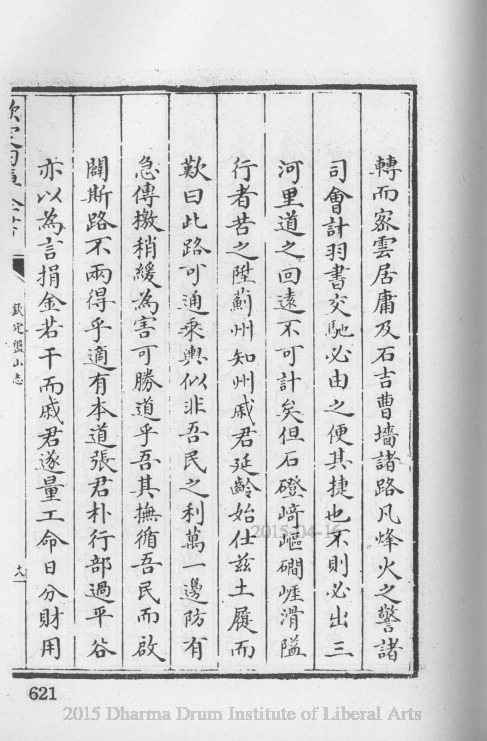 轉而密雲居庸及石古曹墻諸路凡烽火之警諸
司會計羽書交馳必由之便其捷也不則必出三
河里道之回遠不可計矣但石磴崎嶇磵崕滑隘
行者苦之陞薊州知州戚君延齡始仕兹土履而
歎曰此路可通乘輿似非吾民之利萬一邊防有
急傳檄稍緩為害可勝道乎吾其撫循吾民而啟
闢斯路不兩得乎適有本道張君朴行部過平谷
亦以為言捐金若干而戚君遂量工命日分財用
欽定盤山志
621
2015-04-16
2015 Dharma Drum Institute of Liberal Arts